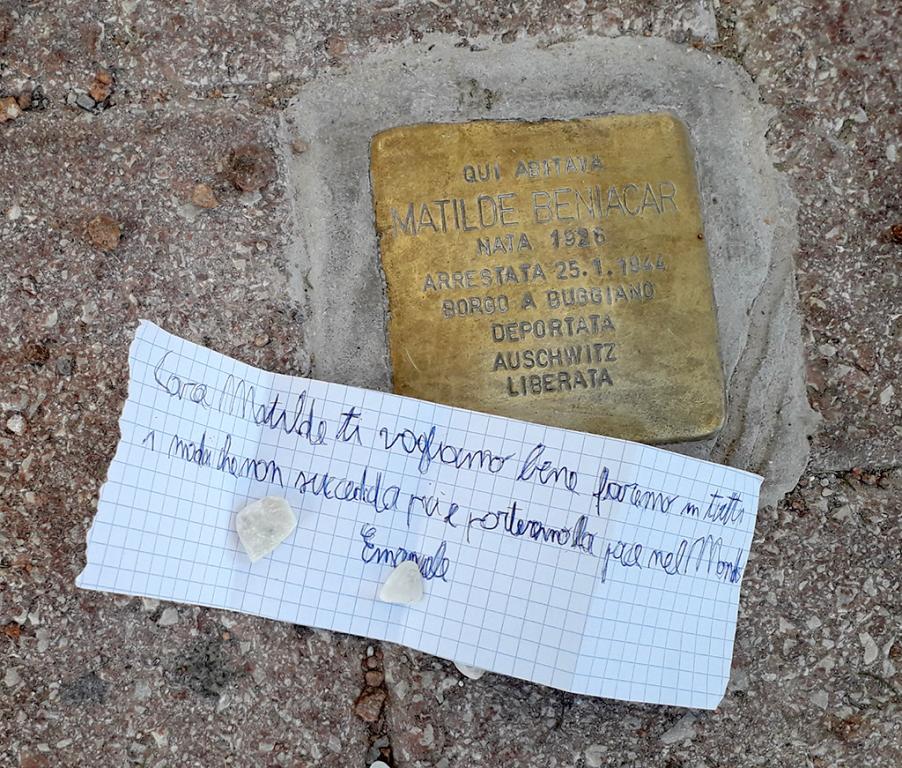 QUI ABITAVA
MATILDE BENIACAR
NATA 1926
ARRESTATA 25.1.1944
BORGO A BUGGIANO
DEPORTATA
AUSCHWITZ
LIBERATA
Cara Matilde ti vogliamo bene faremo in tutti
i modi che non succedda più e porteremo la pace nel Mondo
Emanuele